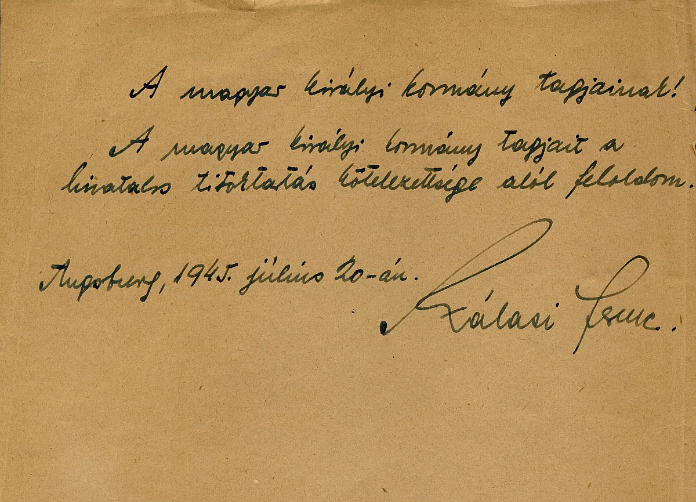 A magyar királyi kormány tagjainak!
A magyar királyi kormány tagjait a
hivatalos titoktartás kötelezettsége alól feloldom.
Augsburg, 1945. július 20-án.
Szálasi Ferenc.